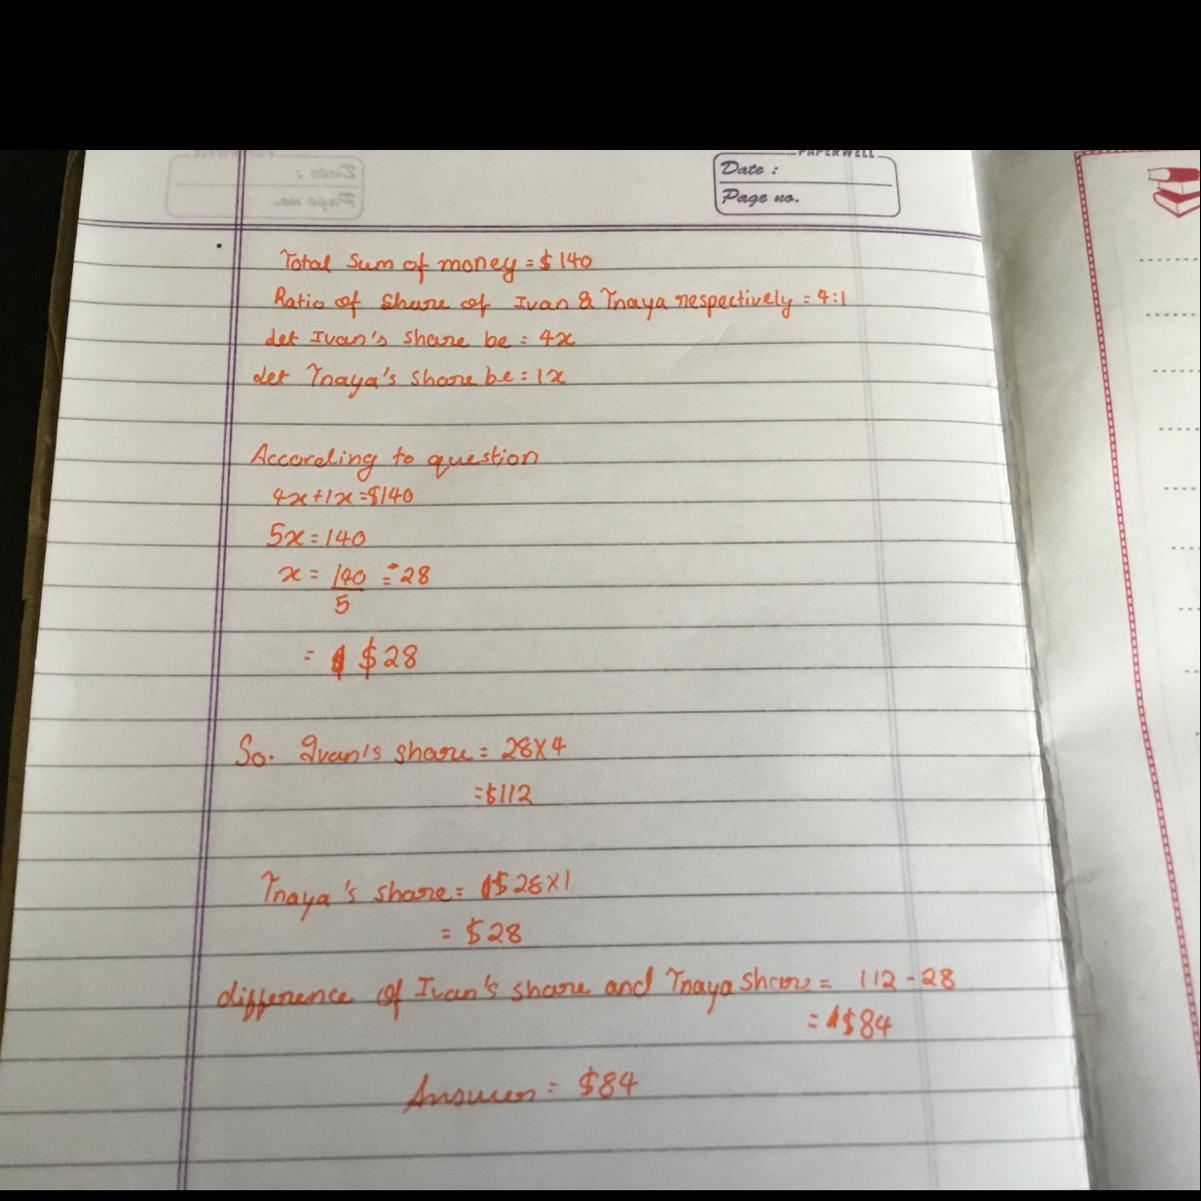 PAPERWELL
Date :
Page no.
Total Sum of money = $ 140
Ratio of Share of Ivan & Inaya respectively = 4:1
let Ivan's share be = 4x
let Inaya's share be = 1x
According to question
4x+1x =$140
5x = 140
x = 140 = 28
5
= $ 28
So. Ivan's share = 28×4
=$112
Inaya's share = $ 28×1
= $28
difference of Ivan's share and Inaya share = 112-28
= $84
Answer = $84